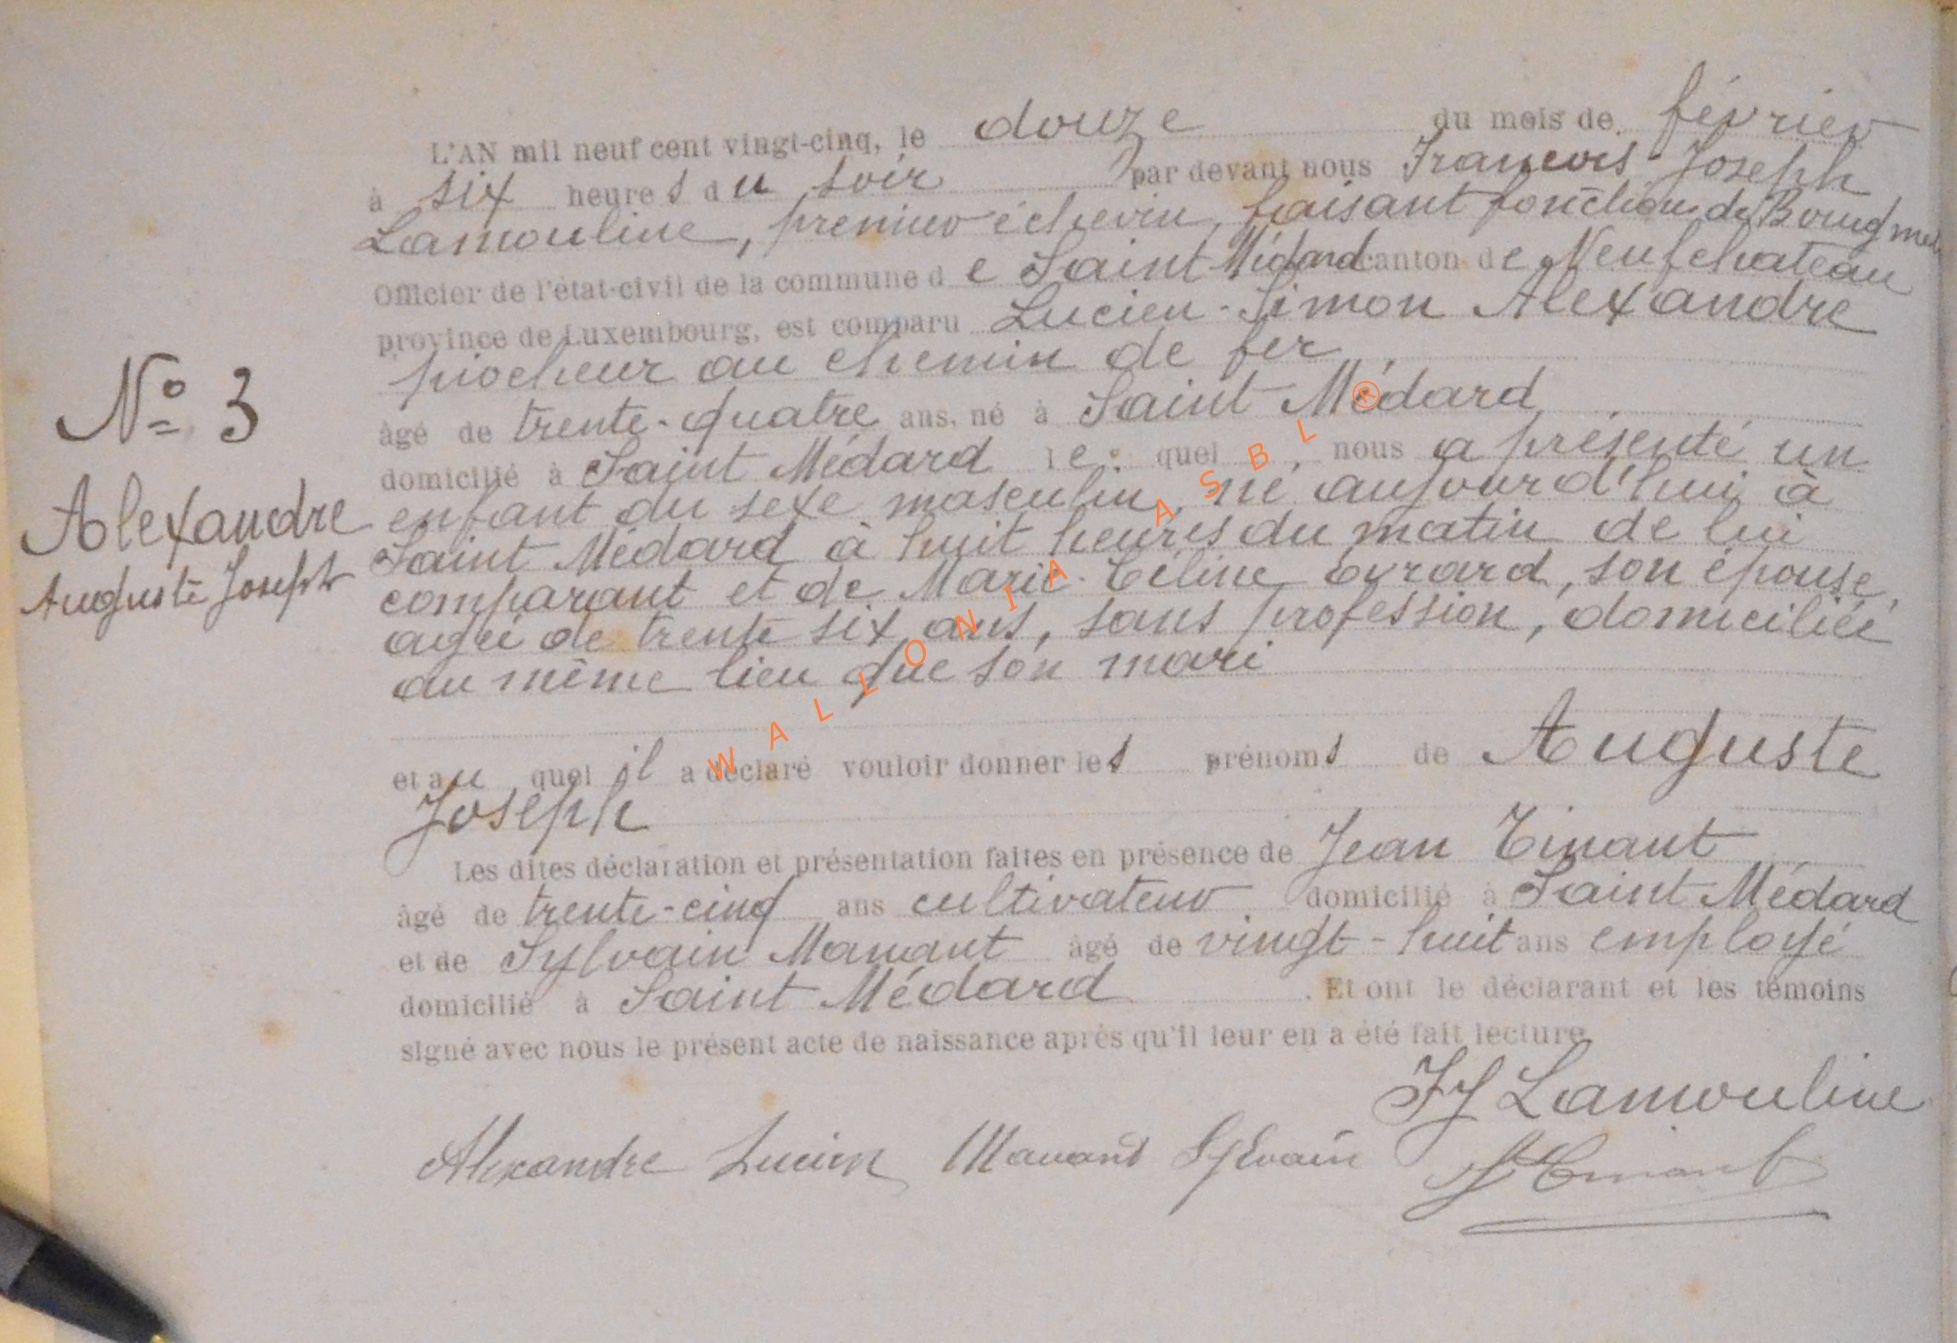 L'AN mil neuf cent vingt-cinq, le douze du mois de février
à six heures du soir par devant nous François-Joseph
Lamouline, premier échevin, faisant fonction de Bourgme
Officier de l'état-civil de la commune de Saint Médard canton de Neufchateau
province de Luxembourg, est comparu Lucien-Simon Alexandre
piocheur au chemin de fer
âgé de trente-quatre ans, né à Saint Médard
domicilié à Saint Médard lequel, nous a présenté un
enfant du sexe masculin, né aujourd'hui à
Saint Médard à huit heures du matin de lui
comparant et de Marie-Céline Evrard, son épouse,
agée de trente six ans, sans profession, domiciliée
au même lieu que son mari
et au quel il a déclaré vouloir donner les prénoms de Auguste
Joseph
Les dites déclaration et présentation faites en présence de Jean Tinant
âgé de trente-cinq ans cultivateur domicilié à Saint Médard
et de Sylvain Manant âgé de vingt-huit ans employé
domicilié à Saint Médard. Et ont le déclarant et les témoins
signé avec nous le présent acte de naissance après qu'il leur en a été fait lecture.
FJ Lamouline
Alexandre Lucien Manant Sylvain J Tinant
N° 3
Alexandre
Auguste Joseph
WALLONIA ASBL ®